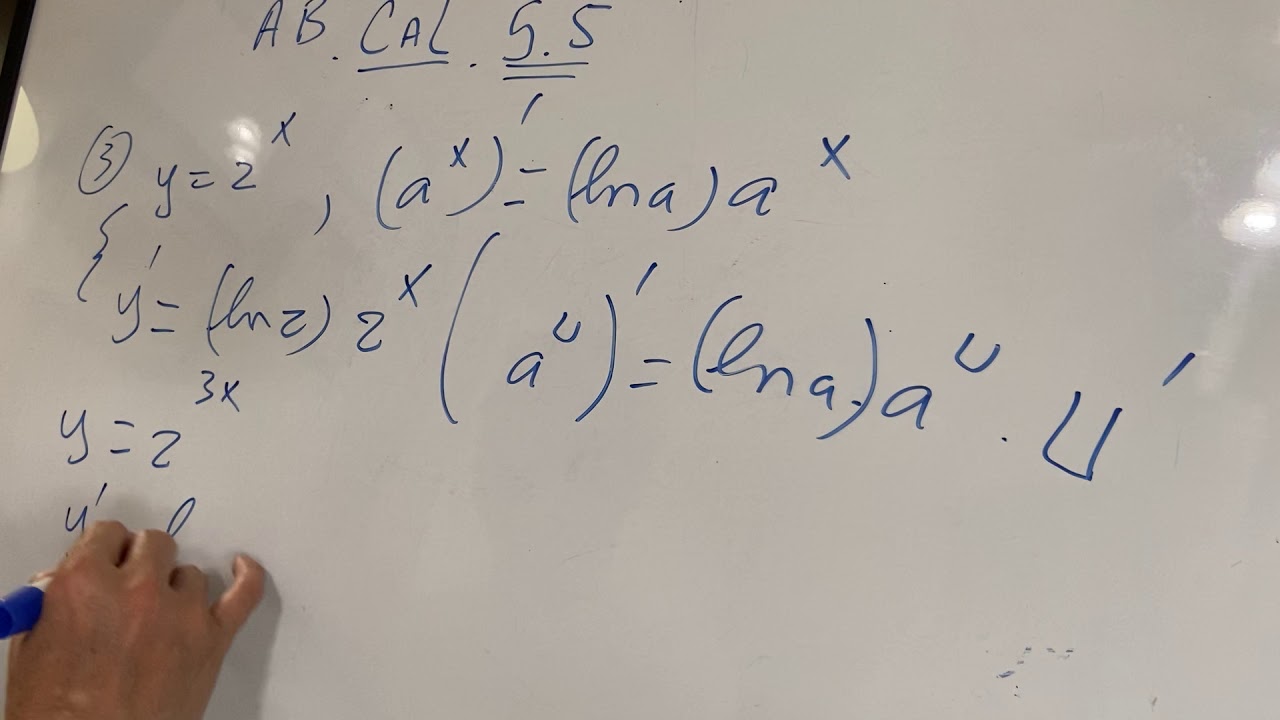 AB. CAL. 5.5
③ y = 2^x , (a^x)' = (ln a) a^x
y' = (ln 2) 2^x (a^u)' = (ln a) a^u . u'
y = 2^3x
y'